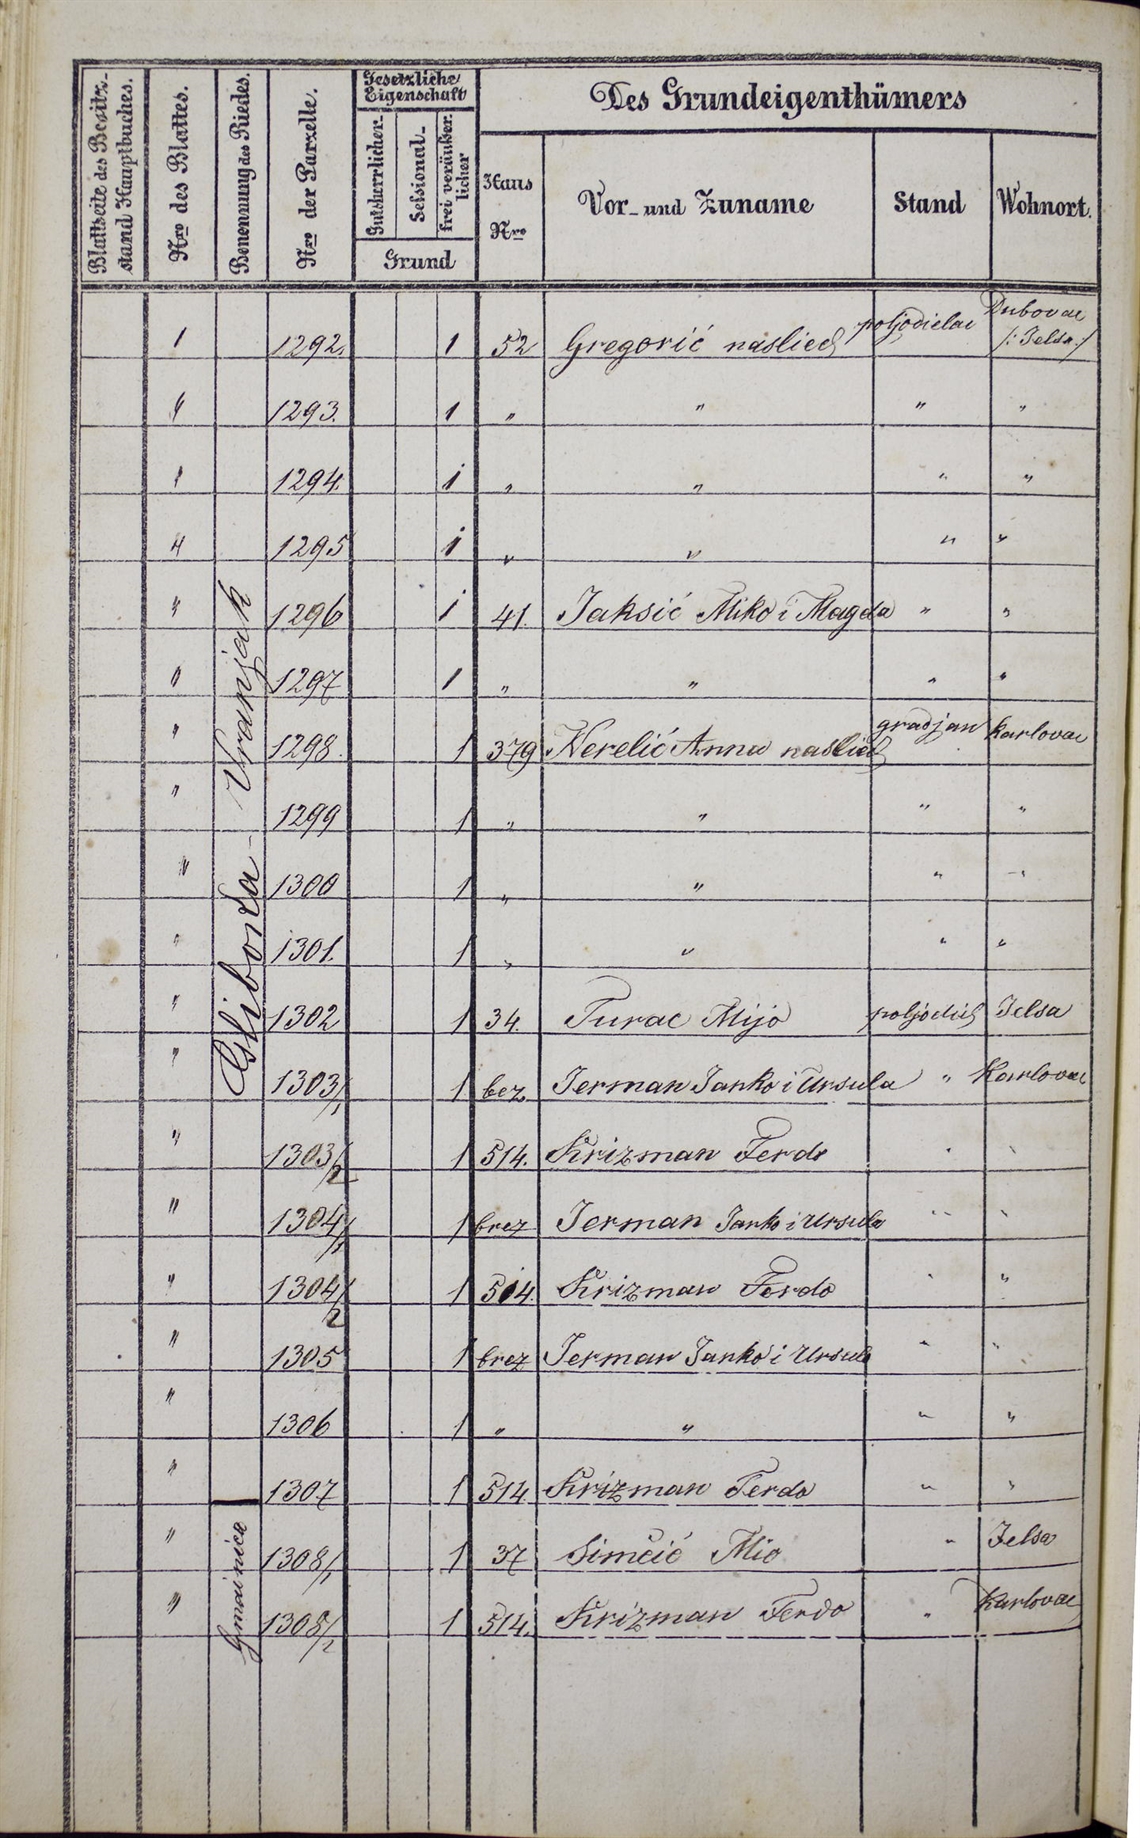 Blattseite des Besitz-
stand Hauptbuches.
Nro des Blattes.
Benennung des Riedes.
Nro der Parzelle.
Gesetzliche
Eigenschaft
Gutsherrlicher-
Sessional-
frei veräußer-
licher
Grund
Des Grundeigenthümers
Haus
Nro
Vor- und Zuname
Stand
Wohnort.
1 1292. 1 52 Gregorić naslied poljodielac Dubovac
/: Jelsa :/
" 1293. 1 " " " "
" 1294. 1 " " " "
" 1295 1 " " " "
" 1296 1 41. Jaksić Miko i Magda " "
" 1297 1 " " " "
" 1298. 1 379 Nerelić Anna naslied gradjan Karlovac
" 1299 1 " " " "
" 1300 1 " " " "
" 1301. 1 " " " "
" 1302 1 34. Turac Mijo Jelsa
" 1303/1 1 bez Jerman Janko i Ursula " Karlovac
" 1303/2 1 514. Krizman Ferdo " "
" 1304/1 1 brez Jerman Janko i Ursula " "
" 1304/2 1 514. Krizman Ferdo " "
" 1305 1 brez Jerman Janko i Ursula " "
" 1306 1 " " " "
" 1307 1 514 Krizman Ferdo " "
" 1308/1 1 37 Simčić Mio " Jelsa
" 1308/2 1 514. Krizman Ferdo " Karlovac
Vranjak
Gmainica